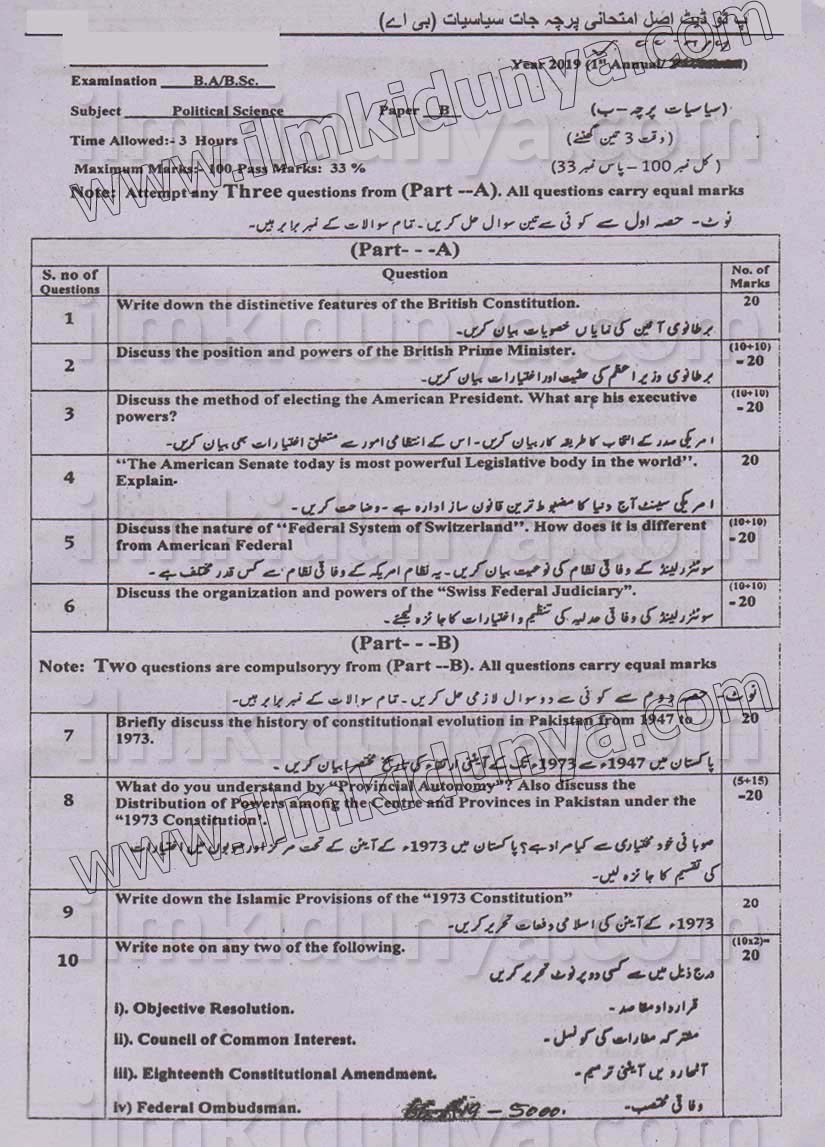 پ ٹو ڈیٹ اصل امتحانی پرچہ جات سیاسیات (بی اے)
Year 2019 (1st Annual/
Examination B.A/B.Sc.
Subject Political Science Paper B (سیاسیات پرچہ – ب)
Time Allowed:- 3 Hours (وقت 3 تین گھنٹے)
Maximum Marks:- 100 Pass Marks: 33 % (کل نمبر 100 – پاس نمبر 33)
Note: Attempt any Three questions from (Part --A). All questions carry equal marks
نوٹ- حصہ اول سے کوئی سے تین سوال حل کریں۔ تمام سوالات کے نمبر برابر ہیں۔
(Part- - -A)
S. no of Questions Question No. of Marks
1 Write down the distinctive features of the British Constitution. 20
برطانوی آئین کی نمایاں خصوصیات بیان کریں۔
2 Discuss the position and powers of the British Prime Minister. (10+10) -20
برطانوی وزیراعظم کی حیثیت اور اختیارات بیان کریں۔
3 Discuss the method of electing the American President. What are his executive (10+10) -20
powers?
امریکی صدر کے انتخاب کا طریقہ کار بیان کریں۔ اس کے انتظامی امور سے متعلق اختیارات بھی بیان کریں۔
4 "The American Senate today is most powerful Legislative body in the world". 20
Explain-
امریکی سینٹ آج دنیا کا مضبوط ترین قانون ساز ادارہ ہے ۔ وضاحت کریں۔
5 Discuss the nature of "Federal System of Switzerland". How does it is different (10+10) -20
from American Federal
سوئٹزرلینڈ کے وفاقی نظام کی نوعیت بیان کریں۔ یہ نظام امریکہ کے وفاقی نظام سے کس قدر مختلف ہے ۔
6 Discuss the organization and powers of the "Swiss Federal Judiciary". (10+10) -20
سوئٹزرلینڈ کی وفاقی عدلیہ کی تنظیم و اختیارات کا جائزہ لیجئے۔
(Part- - -B)
Note: Two questions are compulsoryy from (Part --B). All questions carry equal marks
نوٹ- حصہ دوم سے کوئی سے دو سوال لازمی حل کریں۔ تمام سوالات کے نمبر برابر ہیں۔
7 Briefly discuss the history of constitutional evolution in Pakistan from 1947 to 20
1973.
پاکستان میں 1947ء سے 1973ء تک کے آئینی ارتقاء کی تاریخ مختصرا بیان کریں۔
8 What do you understand by "Provincial Autonomy"? Also discuss the (5+15) -20
Distribution of Powers among the Centre and Provinces in Pakistan under the
"1973 Constitution'.
صوبائی خود مختیاری سے کیا مراد ہے؟ پاکستان میں 1973ء کے آیئن کے تحت مرکز اور صوبوں میں اختیارات
کی تقسیم کا جائزہ لیں۔
9 Write down the Islamic Provisions of the "1973 Constitution" 20
1973ء کے آیئن کی اسلامی دفعات تحریر کریں۔
10 Write note on any two of the following. (10x2)= 20
درج ذیل میں سے کسی دو پر نوٹ تحریر کریں
i). Objective Resolution. قرارداد مقاصد-
ii). Council of Common Interest. مشترکہ مفادات کی کونسل-
iii). Eighteenth Constitutional Amendment. اٹھارویں آیئنی ترمیم-
iv) Federal Ombudsman. وفاقی محتسب- 5000.
www.ilmkidunya.com
www.ilmkidunya.com
ilmkidunya.com
ilmkidunya.com
ilmkidunya.com
ilmkidunya.com
ilmkidunya.com
ilmkidunya.com